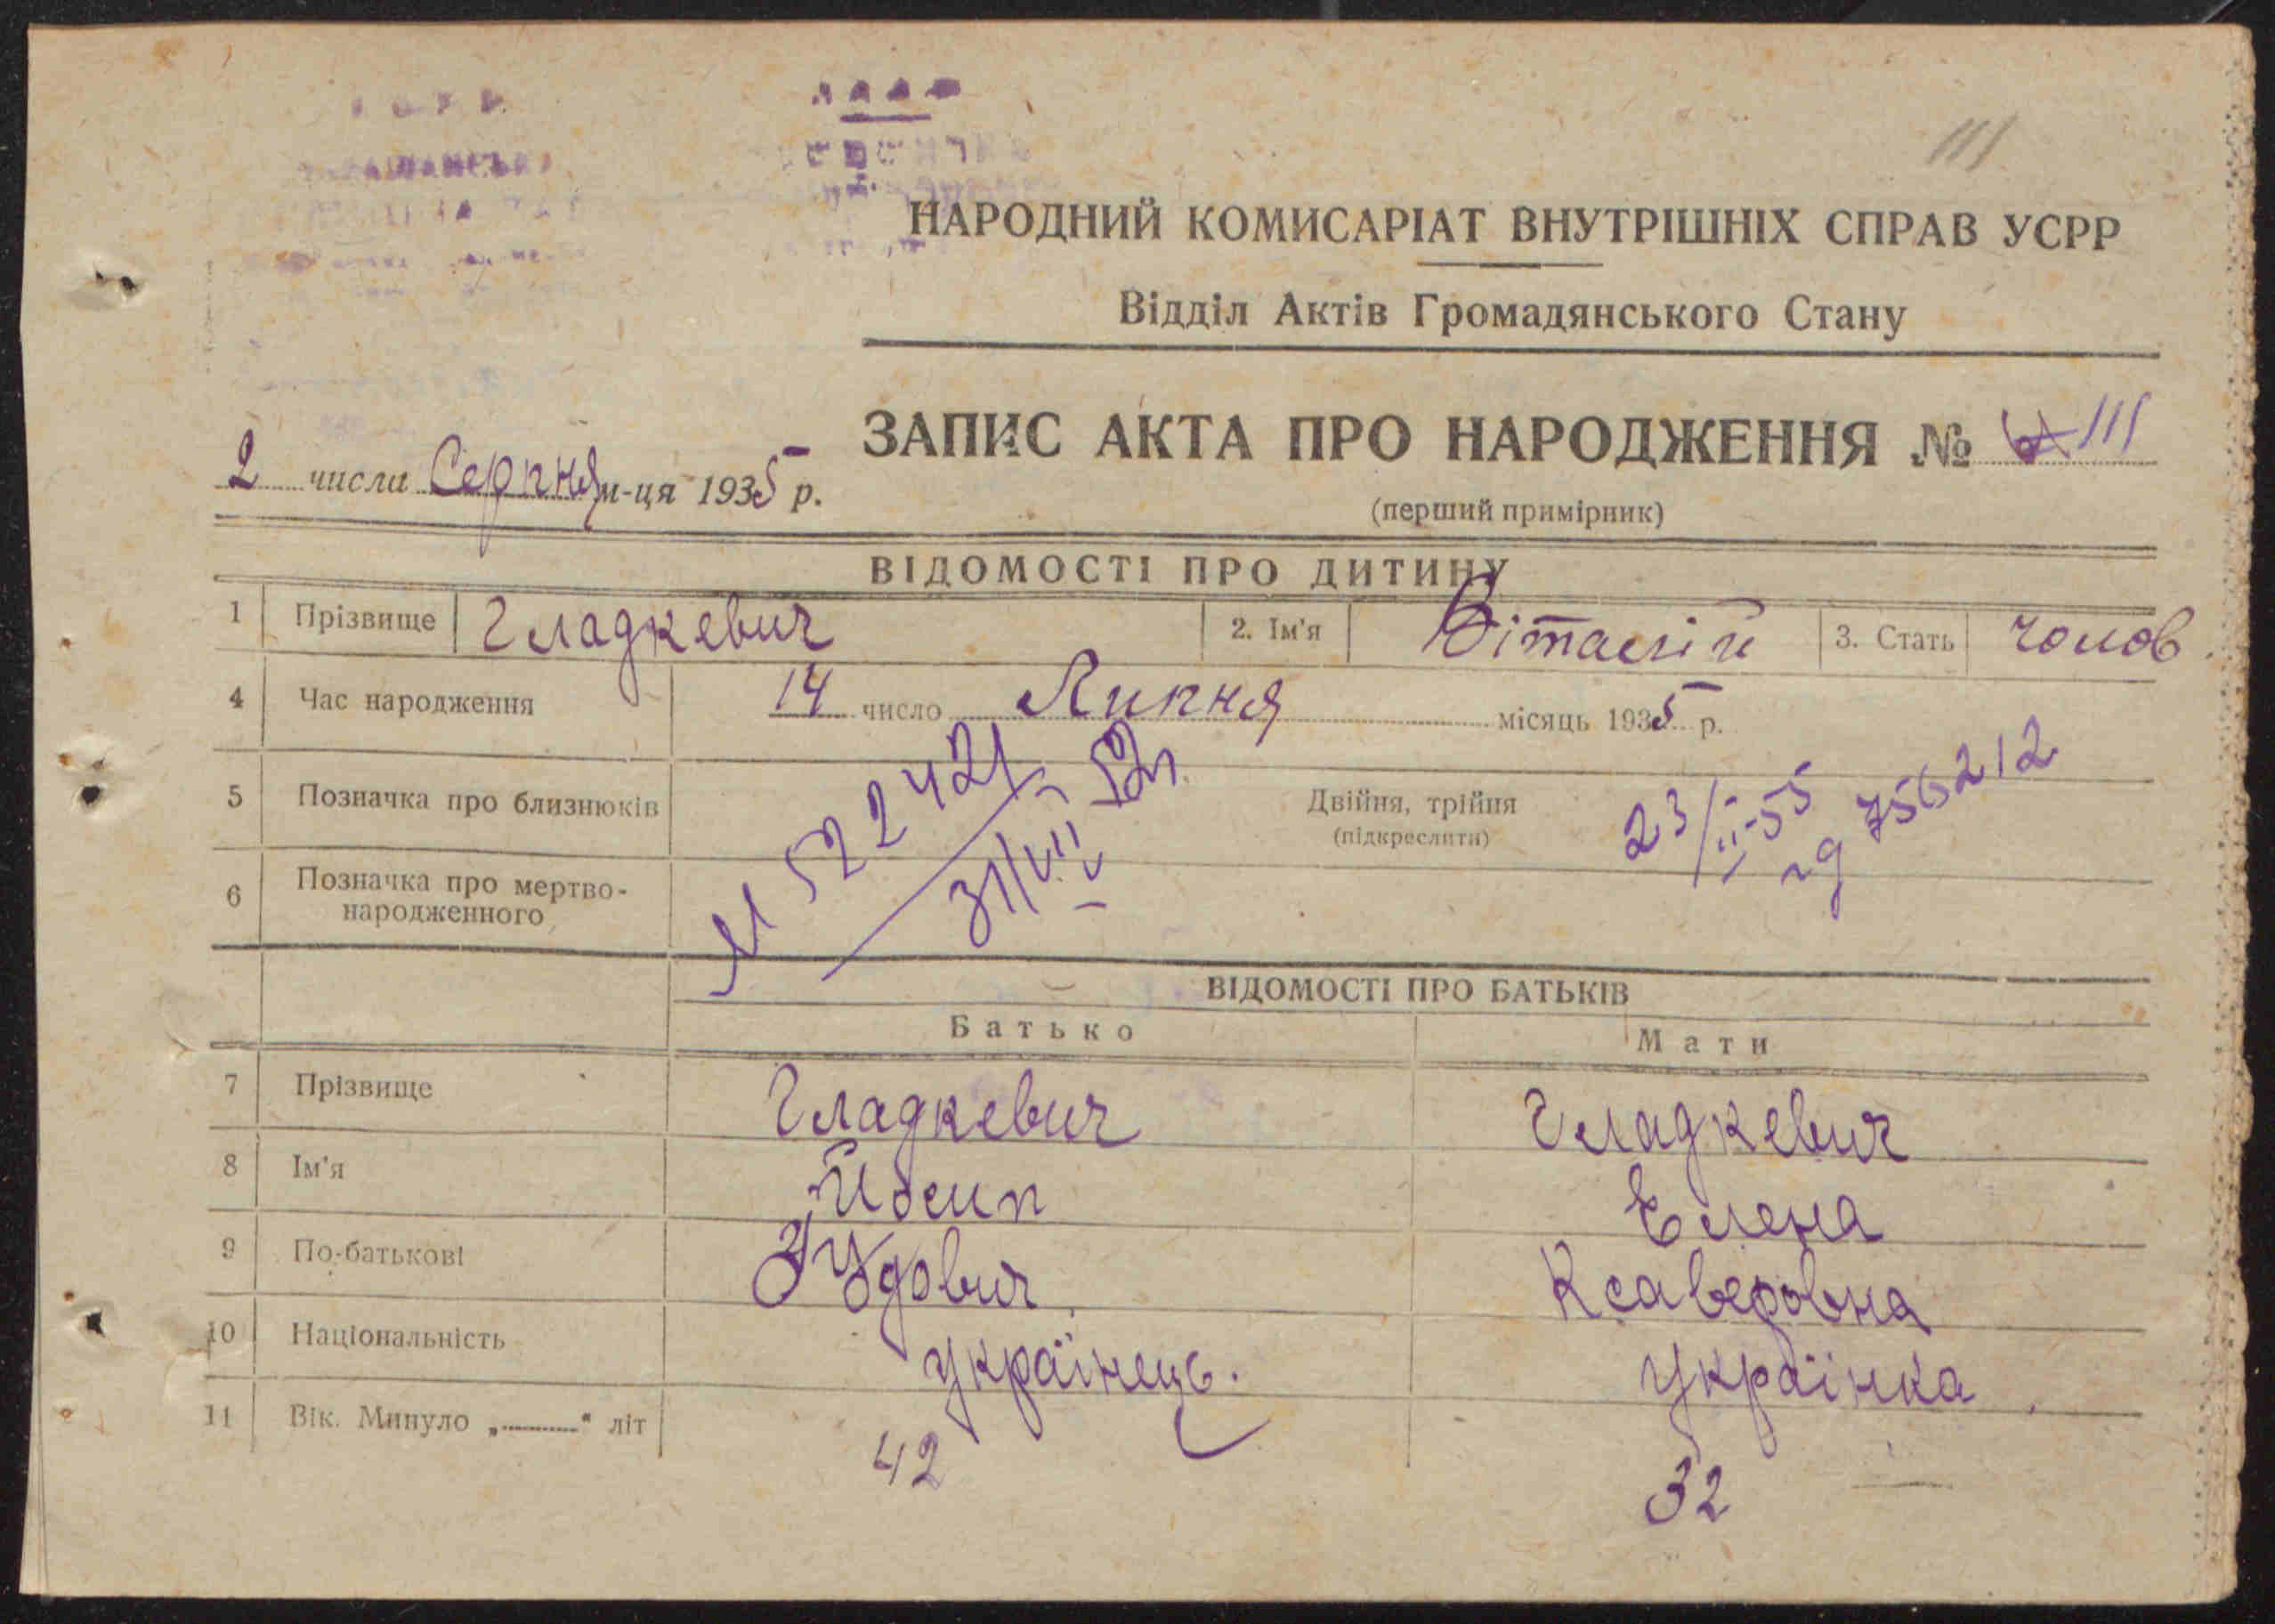 111
НАРОДНИЙ КОМИСАРІАТ ВНУТРІШНІХ СПРАВ УСРР
Відділ Актів Громадянського Стану
ЗАПИС АКТА ПРО НАРОДЖЕННЯ № 111
2 числа Серпня м-ця 1935 р.
(перший примірник)
ВІДОМОСТІ ПРО ДИТИНУ
1 Прізвище Гладкевич 2. Ім'я Віталій 3. Стать чолов.
4 Час народження 14 число Липня місяць 1935 р.
5 Позначка про близнюків Двійня, трійня
(підкреслити)
522421
31/VII 52р.
23/II-55
756212
6 Позначка про мертво-
народженного
ВІДОМОСТІ ПРО БАТЬКІВ
Батько Мати
7 Прізвище Гладкевич Гладкевич
8 Ім'я Йосип Елена
9 По-батькові Ксаверовна
10 Національність українець. українка
11 Вік. Минуло „..........“ літ 42 32